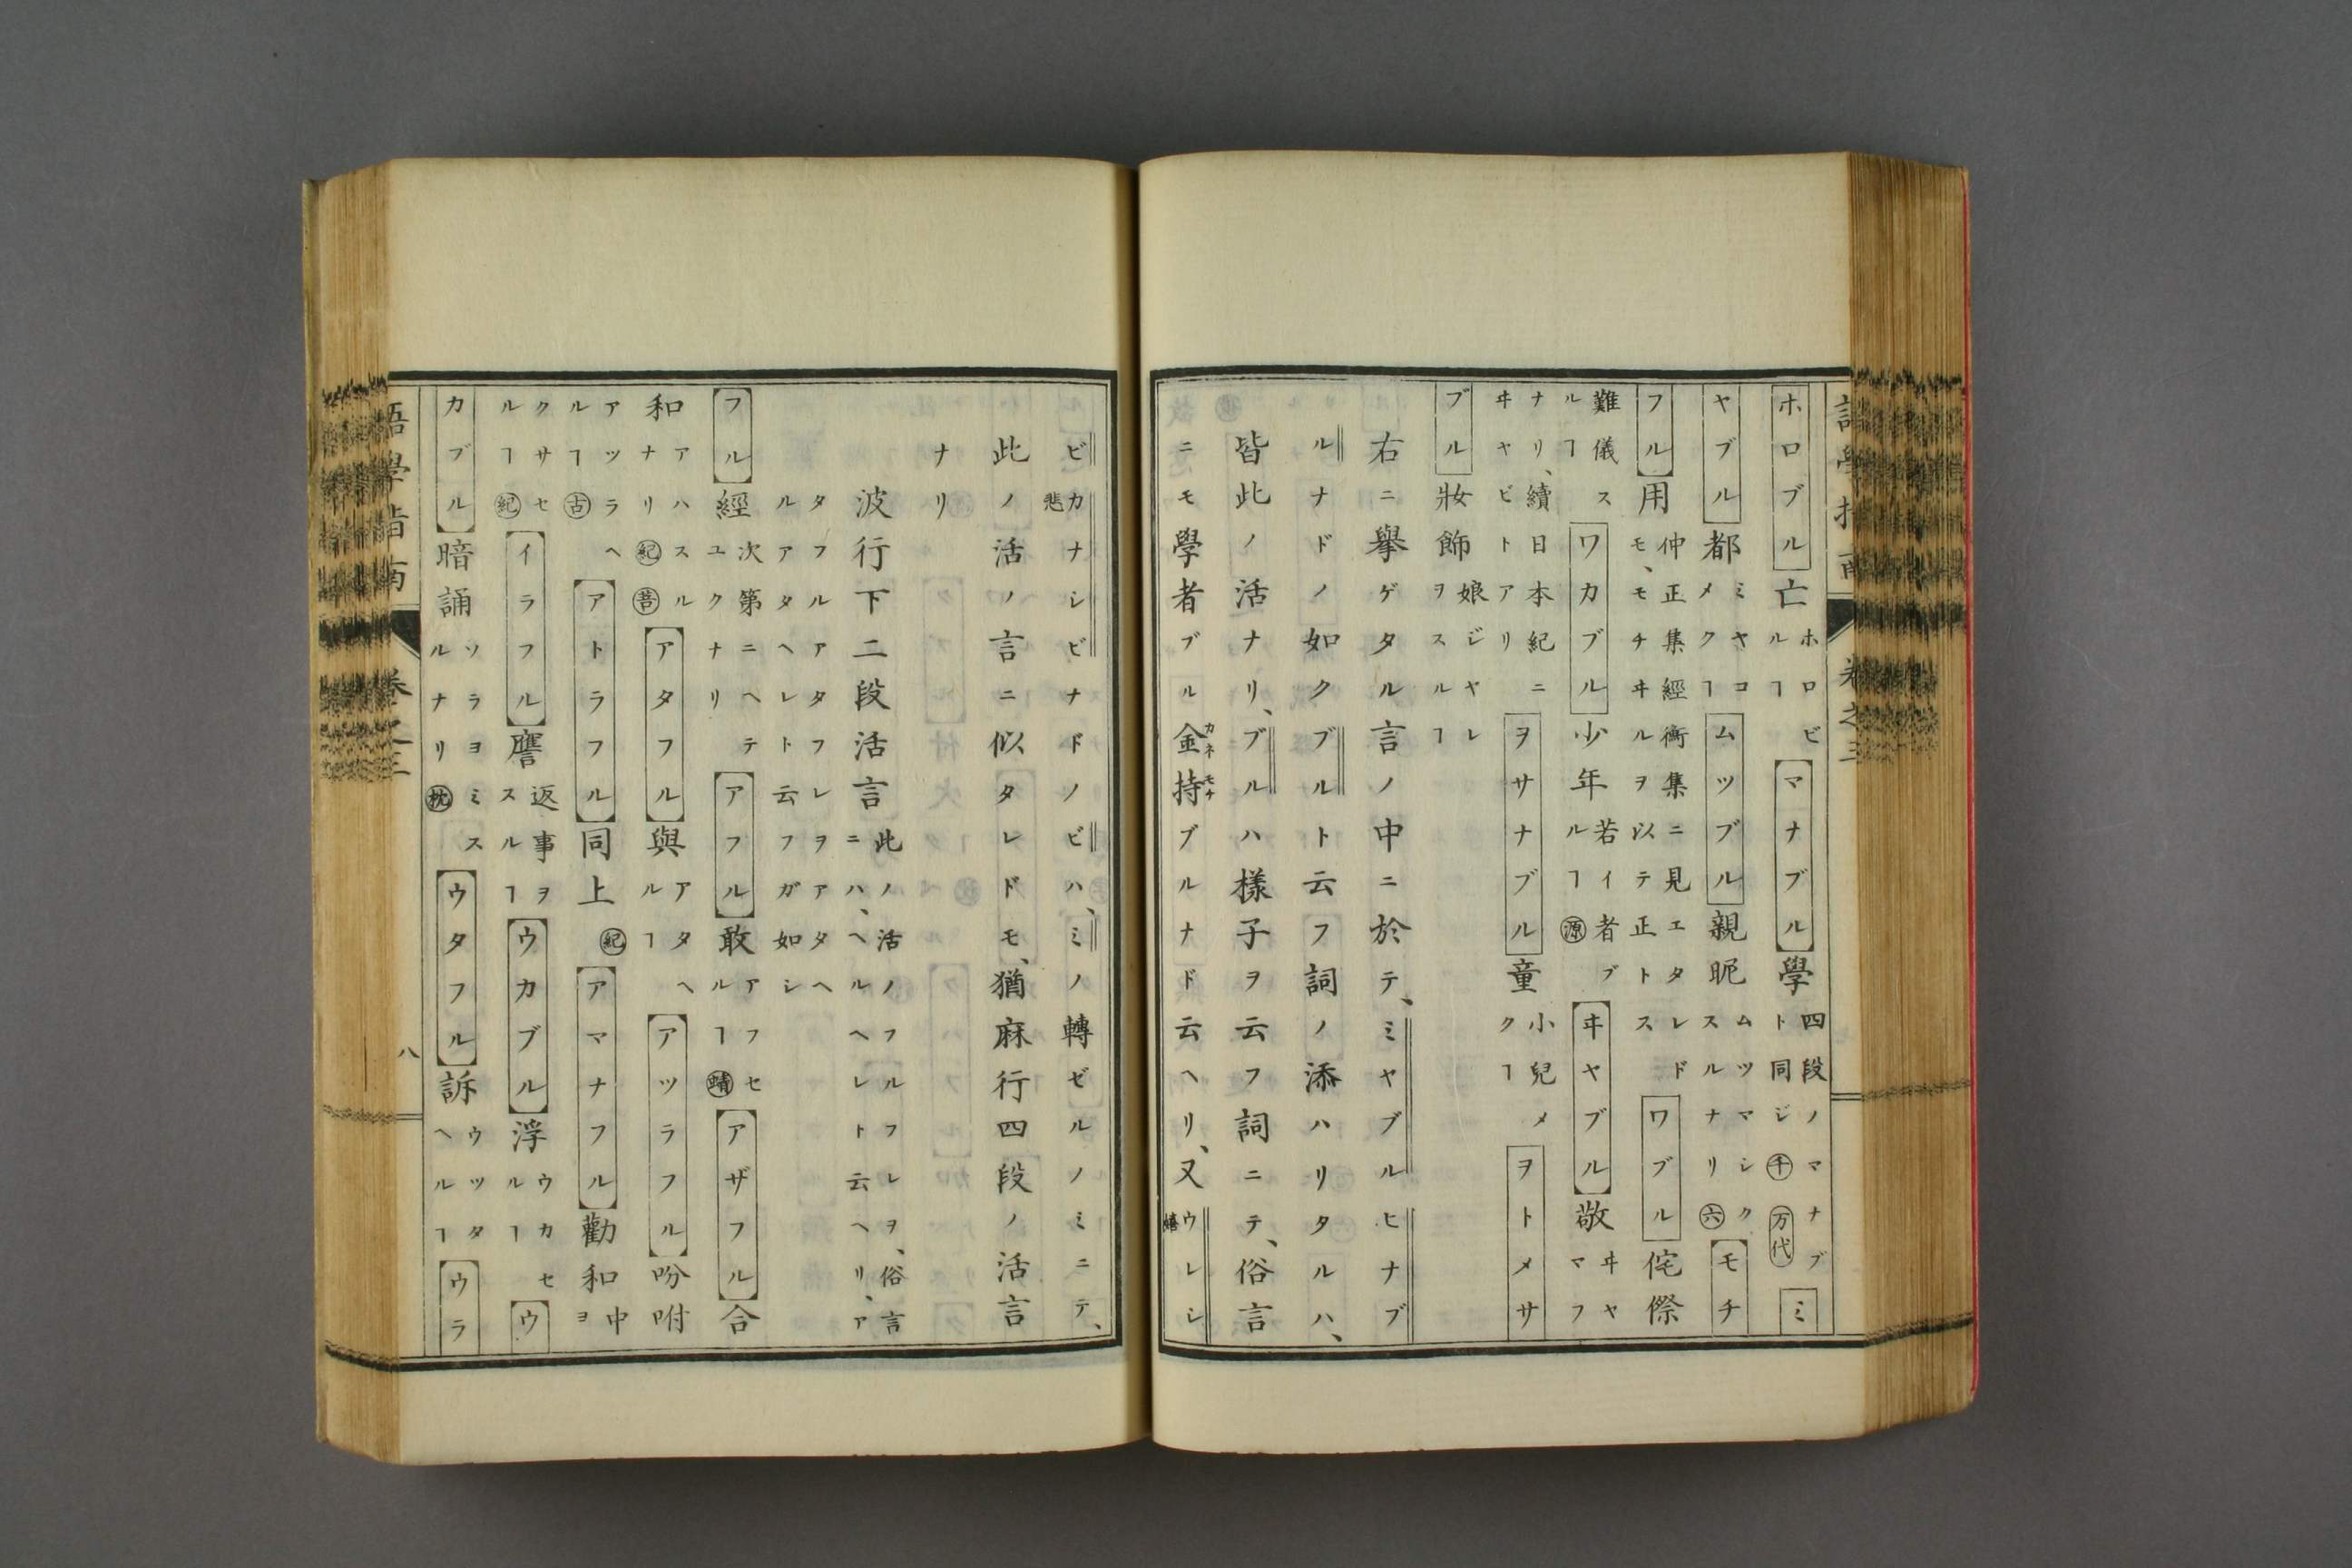 語學指南 卷之三
ホロブル亡ホロビルヿマナブル學四段ノマナブト同ジ千万代ミ
ヤブル都ミヤコメクヿムツブル親昵ムツマシクスルナリ六モチ
フル用仲正集經衡集ニ見エタレドモ、モチヰルヲ以テ正トスワブル侘傺
難儀スルヿワカブル少年若イ者ブルヿ源ヰヤブル敬ヰヤマフ
ナリ、續日本紀ニヰヤビトアリヲサナブル童小兒メクヿヲトメサ
ブル妝飾娘ジヤレヲスルヿ
右ニ擧ゲタル言ノ中ニ於テ、ミヤブルヒナブ
ルナドノ如クブルト云フ詞ノ添ハリタルハ、
皆此ノ活ナリ、ブルハ樣子ヲ云フ詞ニテ、俗言
ニモ學者ブル金持カネモチブルナド云ヘリ、又ウレシ嬉
ビカナシ悲ビナドノビハ、ミノ轉ゼルノミニテ、
此ノ活ノ言ニ似タレドモ、猶麻行四段ノ活言
ナリ
波行下二段活言此ノ活ノフルフレヲ、俗言ニハ、ヘルヘレト云ヘリ、ア
タフルアタフレヲアタヘルアタヘレト云フガ如シ
フル經次第ニヘテユクナリアフル敢アフセルヿ蜻アザフル合
和アハスルナリ紀菩アタフル與アタヘルヿアツラフル吩咐
アツラヘルヿ古アトラフル同上紀アマナフル勸和中ヲ
クサセルヿ紀イラフル譍返事ヲスルヿウカブル浮ウカセルヿウ
カブル暗誦ソラヨミスルナリ枕ウタフル訴ウツタヘルヿウラ
語學指南 卷之三 八